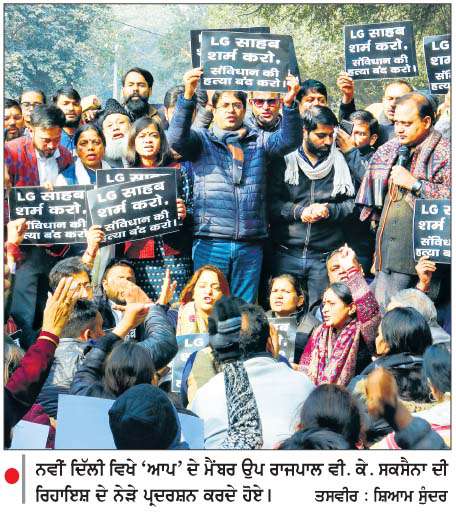 LG साहब
शर्म करो,
संविधान की
हत्या बंद करो।
LG साहब
शर्म करो,
संविधान की
हत्या बंद करो।
LG साहब
LG साहब
शर्म करो,
संविधान की
हत्या बंद करो
LG साहब
शर्म करो,
संविधान की
हत्या बंद करो।
LG
शर्म
संवि
हत्या
LG स
शर्म
संविध
हत्या
ਨਵੀਂ ਦਿੱਲੀ ਵਿਖੇ ‘ਆਪ’ ਦੇ ਮੈਂਬਰ ਉਪ ਰਾਜਪਾਲ ਵੀ. ਕੇ. ਸਕਸੈਨਾ ਦੀ
ਰਿਹਾਇਸ਼ ਦੇ ਨੇੜੇ ਪ੍ਰਦਰਸ਼ਨ ਕਰਦੇ ਹੋਏ। ਤਸਵੀਰ : ਸ਼ਿਆਮ ਸੁੰਦਰ